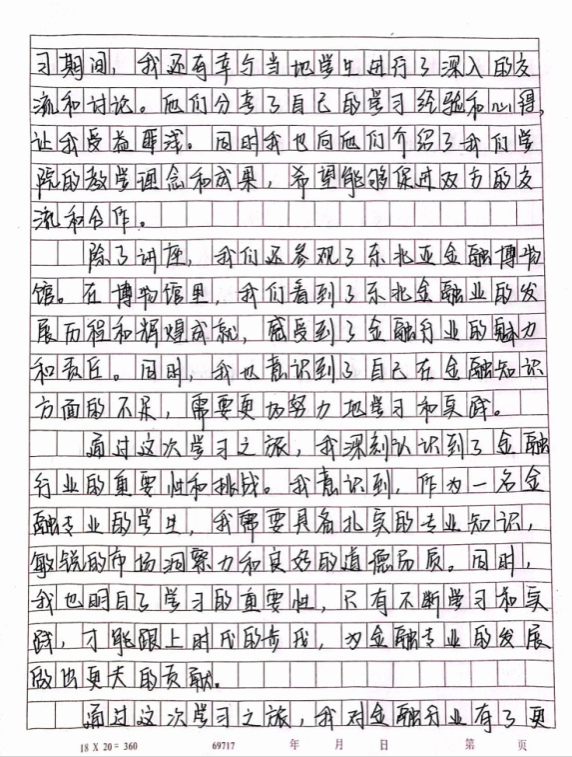 习期间，我还有幸与当地学生进行了深入的交
流和讨论。他们分享了自己的学习经验和心得，
让我受益匪浅。同时我也向他们介绍了我们学
院的教学理念和成果，希望能够促进双方的交
流和合作。
除了讲座，我们还参观了东北亚金融博物
馆。在博物馆里，我们看到了东北金融业的发
展历程和辉煌成就，感受到了金融行业的魅力
和责任。同时，我也意识到了自己在金融知识
方面的不足，需要更加努力地学习和实践。
通过这次学习之旅，我深刻认识到了金融
行业的重要性和挑战。我意识到，作为一名金
融专业的学生，我需要具备扎实的专业知识，
敏锐的市场洞察力和良好的道德品质。同时，
我也明白了学习的重要性，只有不断学习和实
践，才能跟上时代的步伐，为金融专业的发展
做出更大的贡献。
通过这次学习之旅，我对金融行业有了更
18 X 20 = 360 69717 年 月 日 第 页